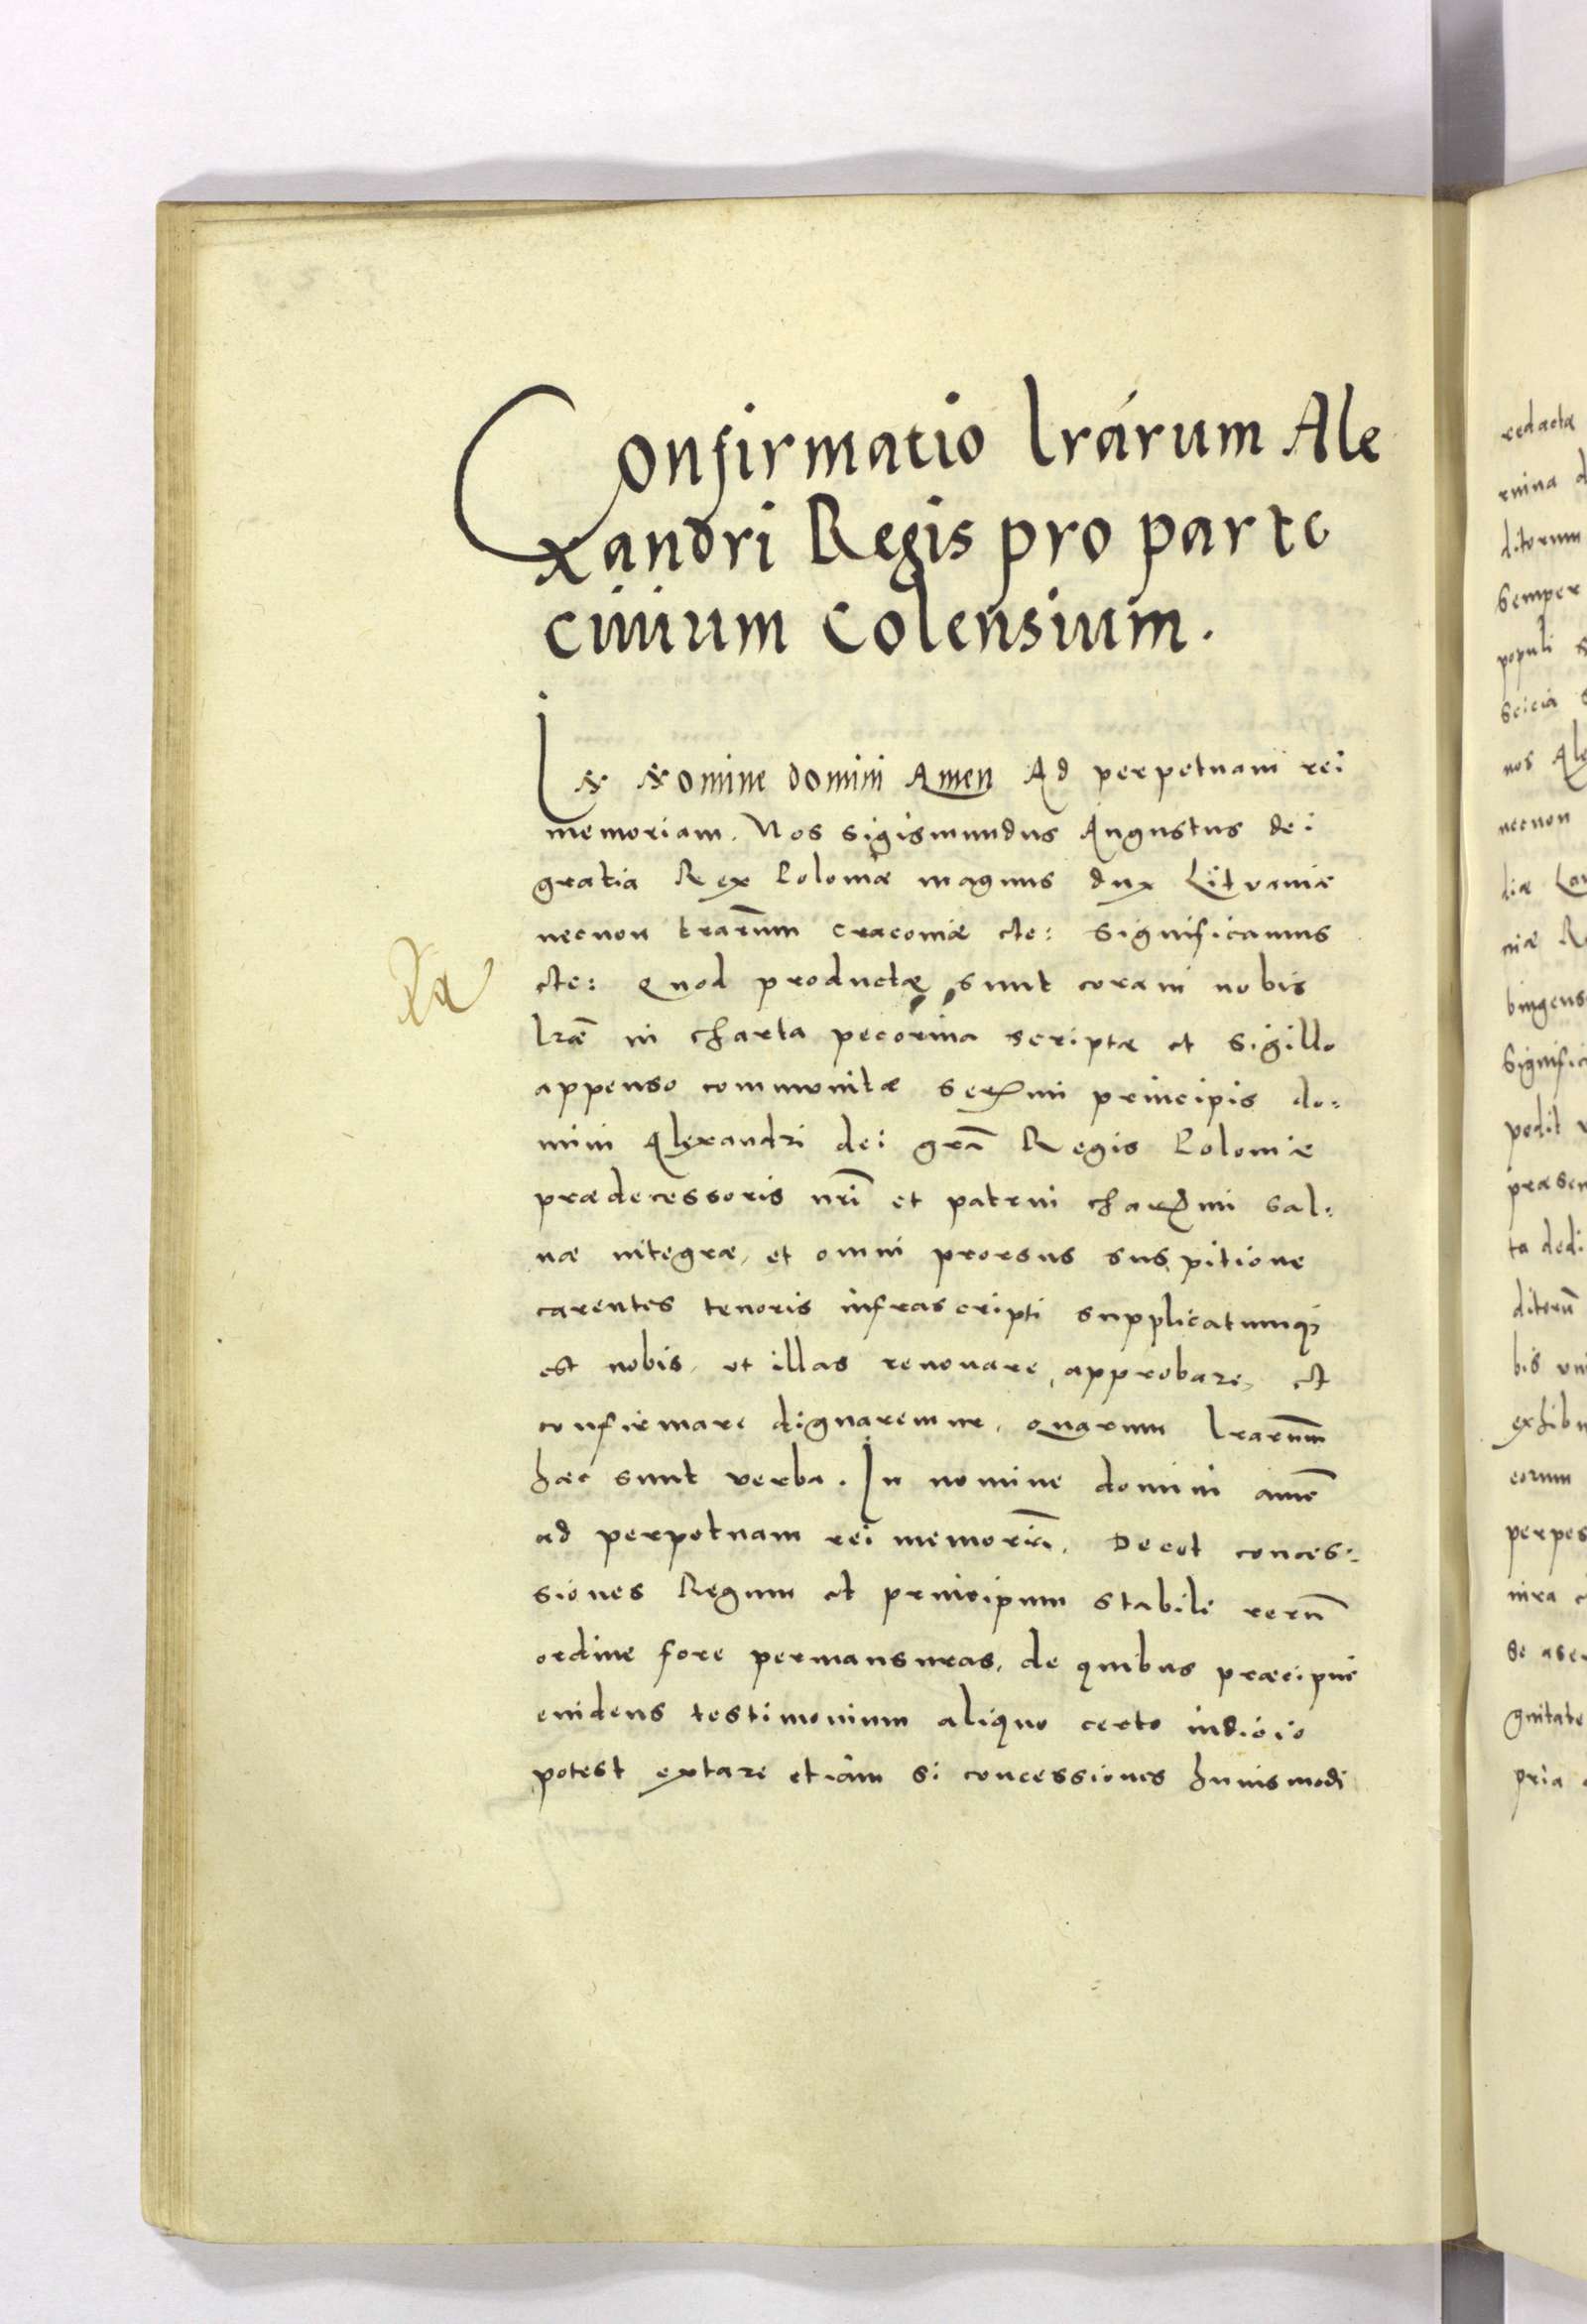 Confirmatio lrarum Ale
xandri Regis pro parte
ciuium Colensium.
In Nomine domini Amen Ad perpetuam rei
memoriam. Nos Sigismundus Augustus dei
gratia Rex Poloniæ magnus dux Lituaniæ
necnon trarum Cracouiæ etc: Significamus
etc: Quod productæ sunt coram nobis
lræ in charta pecorina scriptæ et sigillo
appenso communitæ Sermi principis do:
mini Alexandri dei gra Regis Poloniæ
prædecessoris nri et patrui charmi sal:
uæ integræ, et omni prorsus suspitione
carentes tenoris infrascripti supplicatumq;
est nobis, ut illas renouare, approbare, et
confirmare dignaremur, quarum lrarum
hæc sunt verba. In nomine domini ame
ad perpetuam rei memoria. Decet conces:
siones Regum et principum stabili reru
ordine fore permansuras, de quibus præcipue
euidens testimonium aliquo certo indicio
potest extare etiam si concessiones huiusmodi
redacta
ditorum
semper
populi
nos Ale
necnon
bingens
Signific
præsen
ta dedi
ditoru
exhibu
eorum
perpes
gnitate
pria